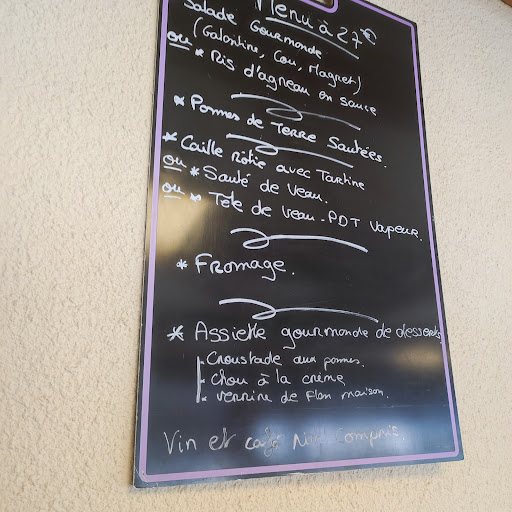 Menu à 27€
Salade Gourmande
(Galantine, Cou, Magret)
ou * Ris d'agneau en sauce
* Pommes de Terre Sautées.
* Caille Rôtie avec Tartine
ou * Sauté de Veau.
ou * Tête de Veau - PDT Vapeur.
* Fromage.
* Assiette gourmande de desserts
- Croustade aux pommes.
- chou à la crème
- verrine de Flan maison.
Vin et café Compris